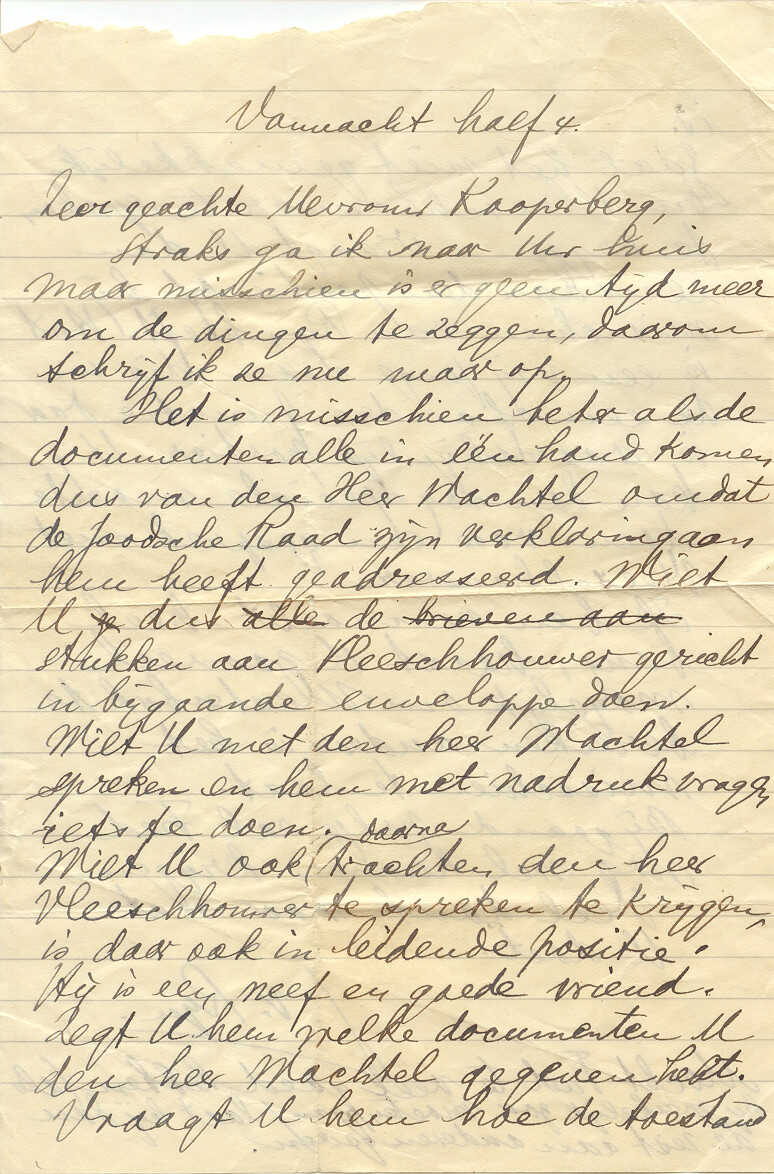 Vannacht half 4.
Zeer geachte Mevrouw Kooperberg,
Straks ga ik naar Uw huis
maar misschien is er geen tijd meer
om de dingen te zeggen, daarom
schrijf ik ze nu maar op.
Het is misschien beter als de
documenten alle in één hand komen
dus van den Heer Wachtel omdat
de Joodsche Raad zijn verklaring aan
hem heeft geadresseerd. Wilt
U ze dus alle de brieven aan
stukken aan Vleeschhouwer gericht
in bijgaande enveloppe doen.
Wilt U met den heer Wachtel
spreken en hem met nadruk vragen
iets te doen.
daarna
Wilt U ook trachten den heer
Vleeschhouwer te spreken te krijgen,
is daar ook in leidende positie.
Hij is een neef en goede vriend.
Zegt U hem welke documenten U
den heer Wachtel gegeven hebt.
Vraagt U hem hoe de toestand